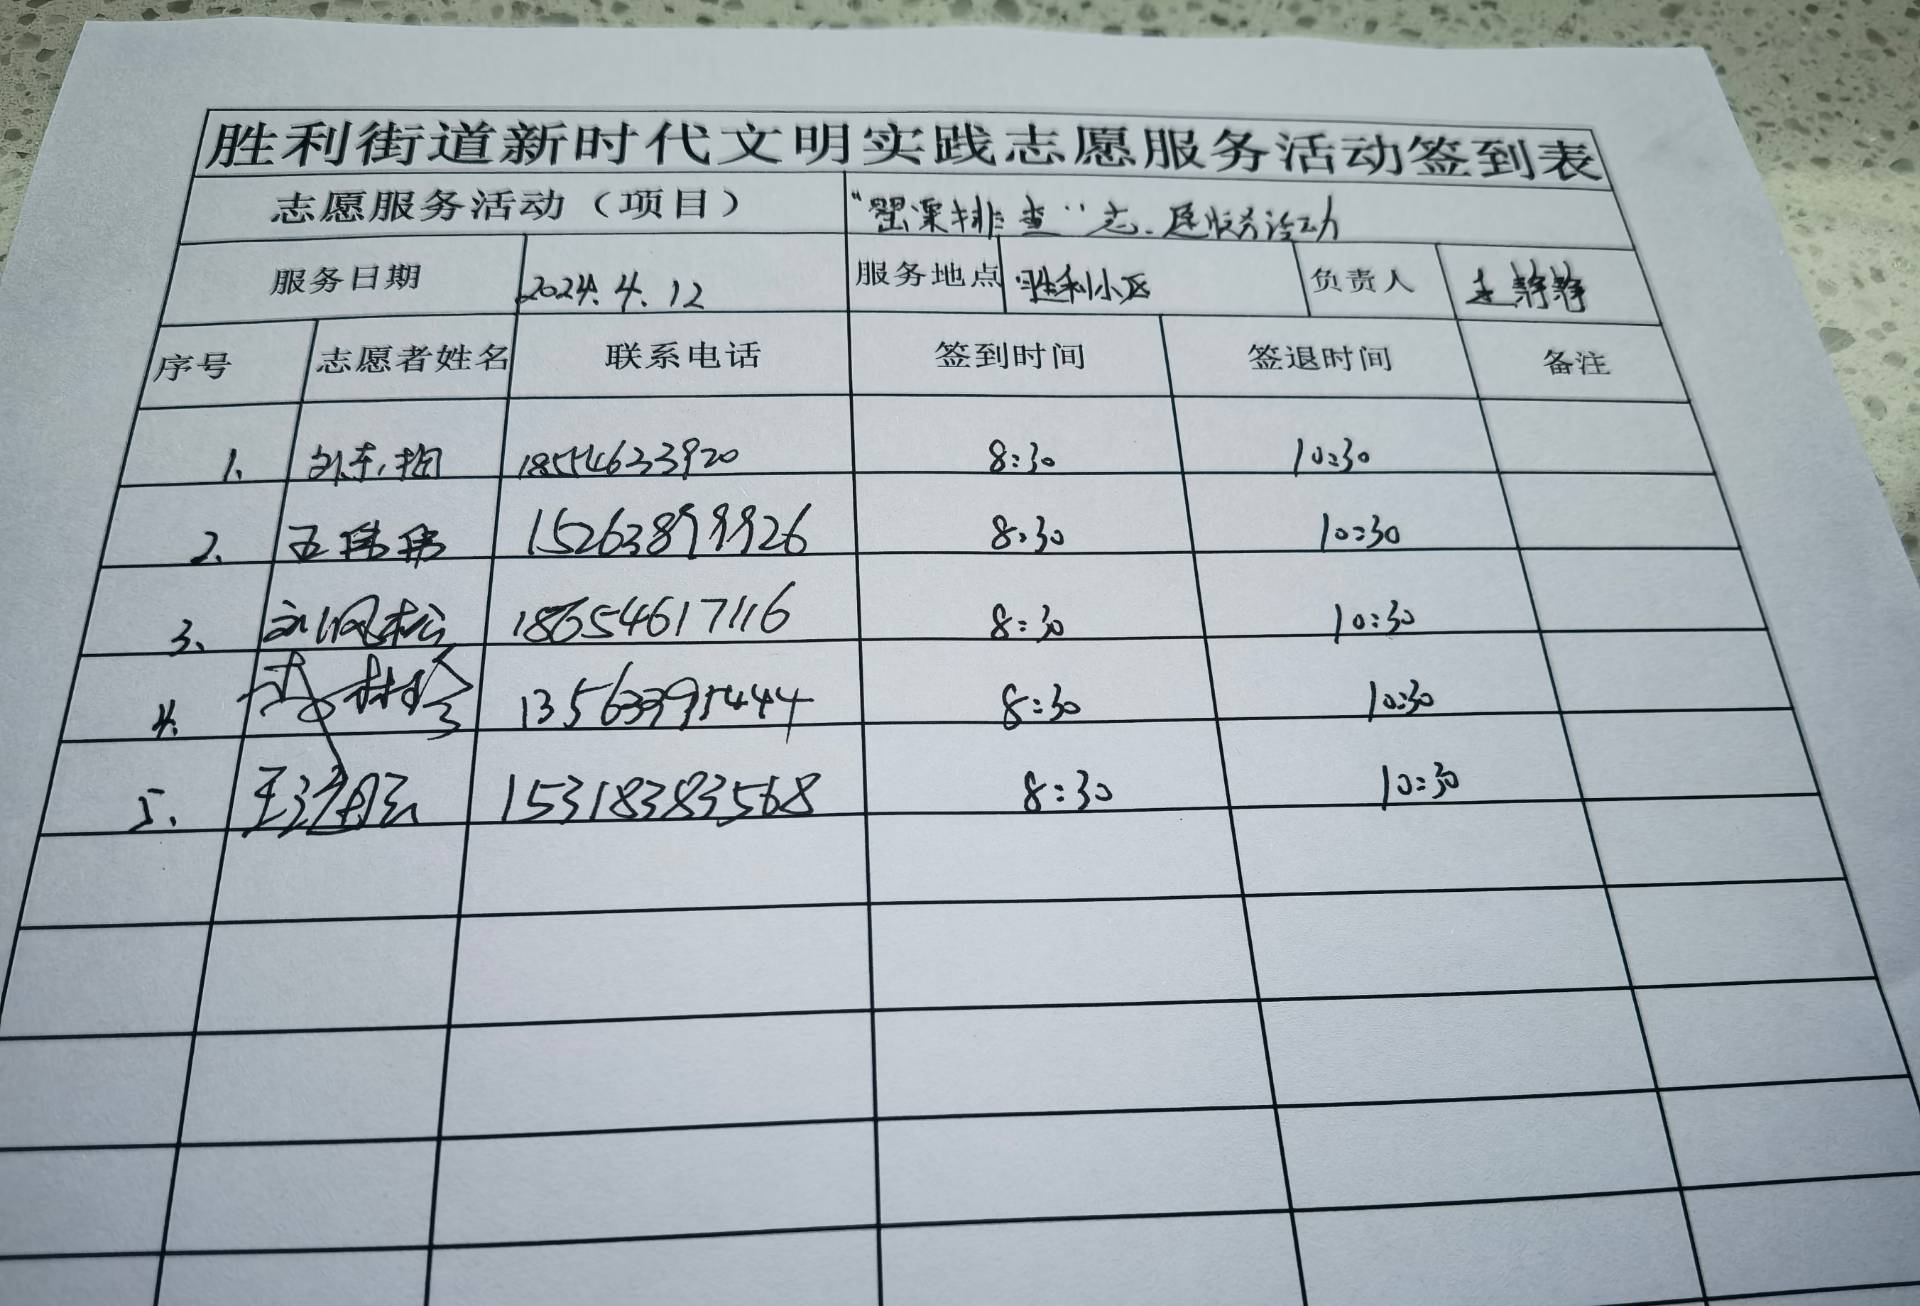 胜利街道新时代文明实践志愿服务活动签到表
志愿服务活动（项目） "罂粟排查"志愿服务活动
服务日期 2024.4.12 服务地点 胜利小区 负责人 王静静
序号 志愿者姓名 联系电话 签到时间 签退时间 备注
1、 18554633920 8:30 10:30
2、 15263899926 8:30 10:30
3、 18654617116 8:30 10:30
4、 8:30 10:30
5、 15318383568 8:30 10:30